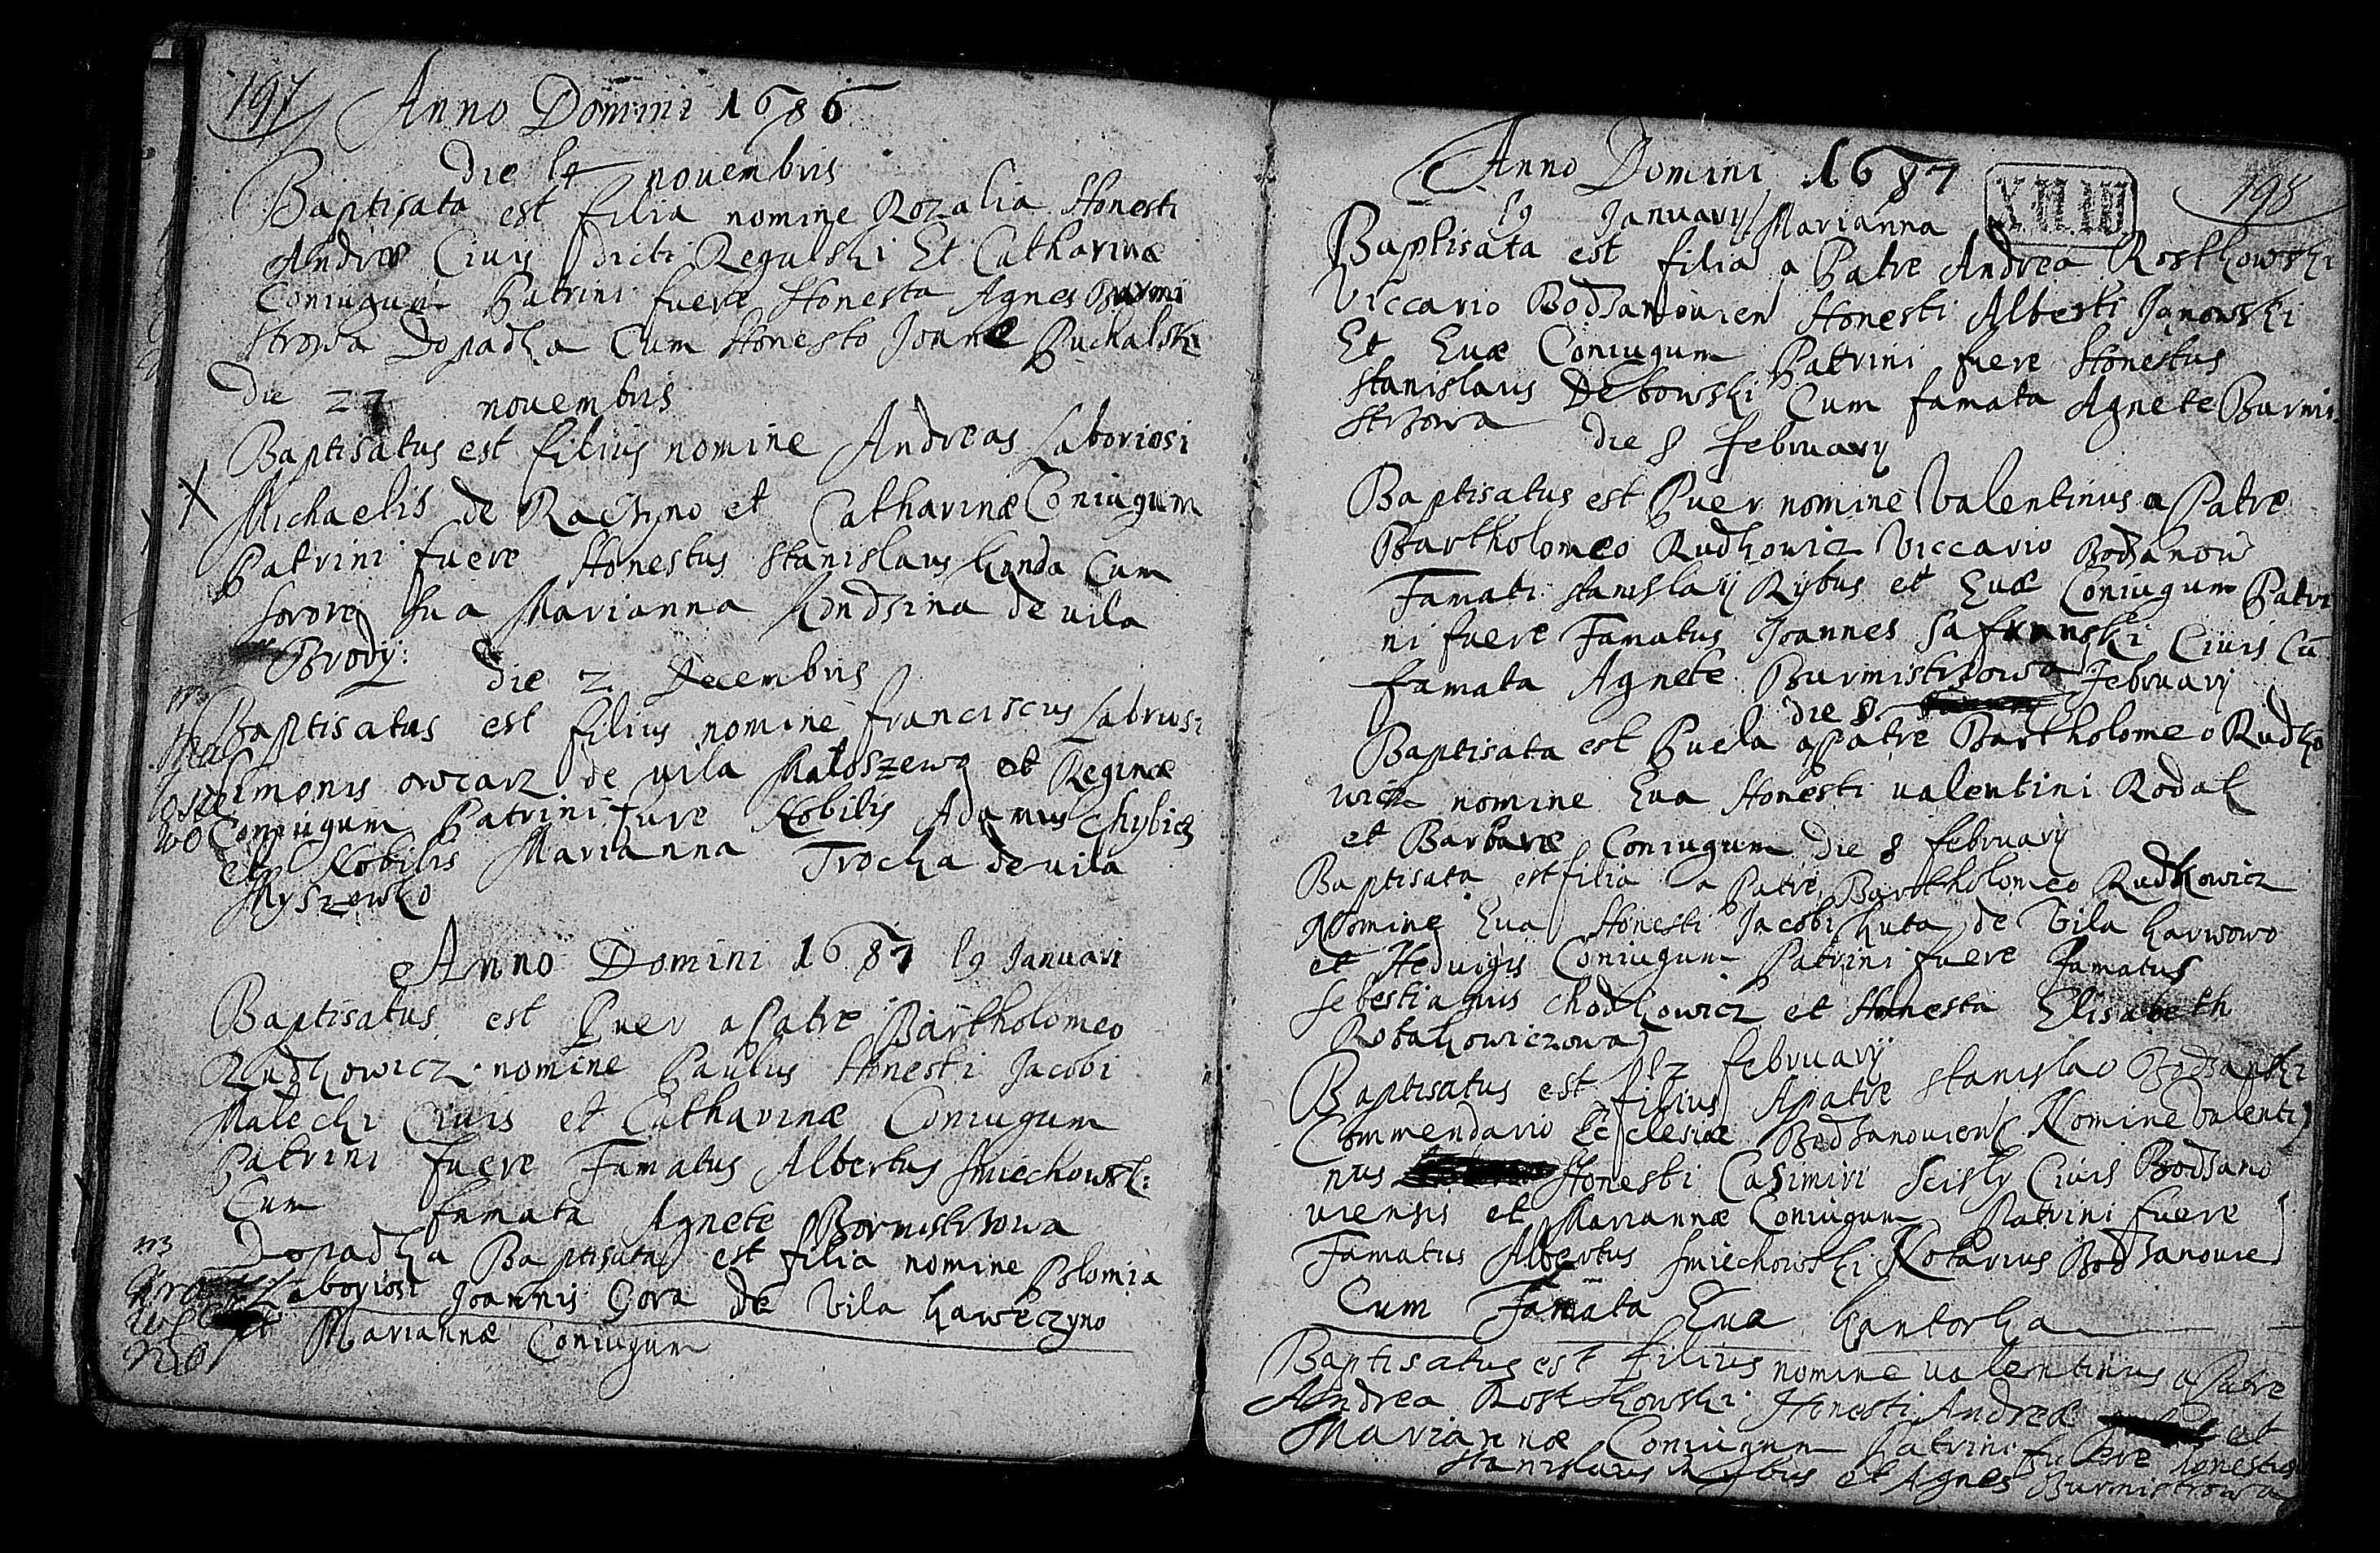 197
Anno Domini 1686
die 14 novembris
Baptisata est filia nomine Rozalia Honesti
Andreæ Civis dicti Regulski Et Catharinæ
Coniugum Patrini fuere Honesta Agnes Burmi
strzowa Dopadka Cum Honesto Joanne Puchalski
Die 27 novembris
Baptisatus est filius nomine Andreas Laboriosi
Michaelis de Raczyno et Catharinæ Coniugum
Patrini fuere Honestus Stanislaus Konda Cum
sorore sua Marianna Kondzina de vila
Brody:
die 2 Decembris
Baptisatus est filius nomine franciscus Labriosi
Simonis owczarz de vila Maloszewo et Reginæ
Coniugum Patrini fuere Nobilis Adamus Chybicz
et Nobilis Marianna Trocka de vila
Myszewko
Anno Domini 1687 19 Januari
Baptisatus est Puer a Patre Bartholomeo
Rudkowicz nomine Paulus Honesti Jacobi
Malecki Civis et Catharinæ Coniugum
Patrini fuere Famatus Albertus Smiechowski
Cum famata Agnete Bormistrzowa
Dopadka Baptisata est filia nomine Polonia
Laboriosi Joannis Gora de Vila Gaweczyno
et Mariannæ Coniugum
198
Anno Domini 1687
19 January Marianna
Baptisata est filia a Patre Andrea Rostkowski
Viccario Bodzanovien Honesti Alberti Janowski
Et Evæ Coniugum Patrini fuere Honestus
Stanislaus Debowski Cum famata Agnete Burmi
strzowa
die 8 february
Baptisatus est Puer nomine Valentinus a Patre
Bartholomeo Rudkowicz Viccario Bodzanov
Famati Stanislai Rybus et Evæ Coniugum Patri
ni fuere Famatus Joannes Safranski Civis Cū
famata Agnete Burmistrzowa
die 8 February
Baptisata est Puela a Patre Bartholomeo Rudko
wicz nomine Eva Honesti valentini Rodak
et Barbaræ Coniugum die 8 february
Baptisata est filia a Patre Bartholomeo Rudkowicz
Nomine Eva Honesti Jacobi Kuta de Vila Karwowo
et Hedvigis Coniugum Patrini fuere Famatus
Sebestianus Chodkowicz et Honesta Elisabeth
Robakowiczowa
12 february
Baptisatus est filius A patre Stanislao Bodzanski
Commendario Ecclesiæ Bodzanoviens Nomine Valenti
nus Honesti Casimiri Scisly Civis Bodzano
viensis et Mariannæ Coniugum Patrini fuere
Famatus Albertus Smiechowski Notarius Bodzanovie
Cum Famata Eva Kantorka
Baptisatus est filius nomine valentinus a Patre
Andrea Rostkowski Honesti Andreæ et
Mariannæ Coniugum Patrini fuere Honestus
Stanislaus Rybus et Agnes Burmistrzowa